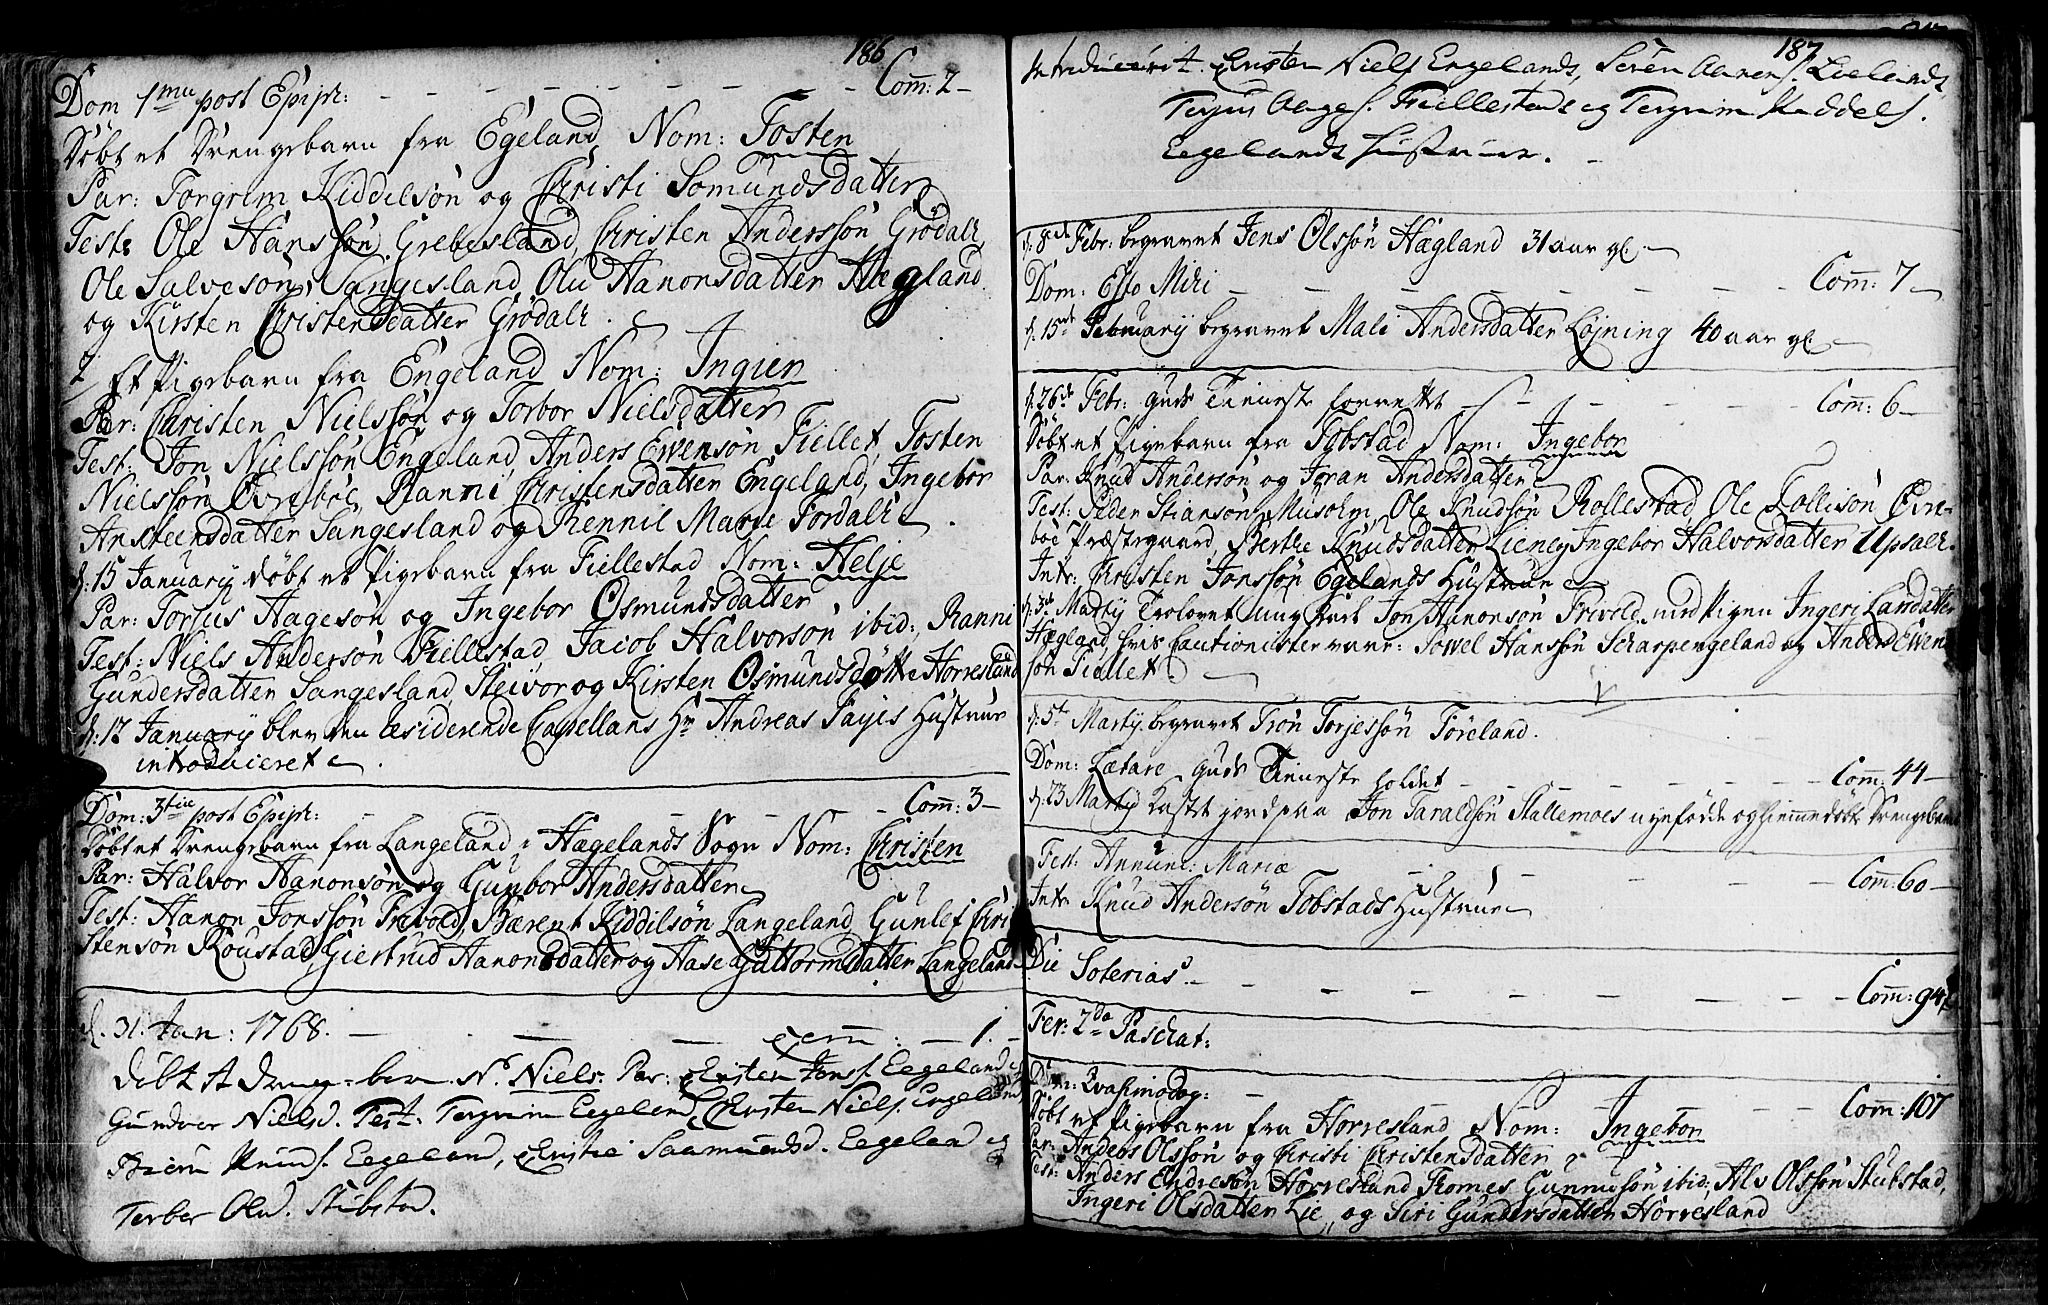 186
Dom 1ma post Epiph: — — — — — Com: 2 —
Døbt et Drengebarn fra Egeland, Nom: Tosten
Par: Torgrim Kiddelsøn og Christi Somundsdatter
Test: Ole Hanssøn Grebesland, Christen Anderssøn Grødale,
Ole Salvesøn Langesland, Olu Hanonsdatter Hægland
og Kirsten Christensdatter Grødale.
2/ Et Pigebarn fra Engeland Nom: Ingier
Par: Christen Nielssøn og Torbor Nielsdatter
Test: Jon Nielssøn Engeland, Anders Evensøn Fiellet, Tosten
Nielssøn Øvrebøe, Ranni Christensdatter Engeland, Ingebor
Ansteensdatter Langesland og Marie Fordale.
d: 15 Januarij døbt et Pigebarn fra Fiellestad Nom: Helje
Par: Torjus Aagesøn og Ingebor Osmundsdatter
Test: Niels Andersøn Fiellestad, Jacob Halvorsøn ibid:, Ranni
Gundersdatter Langesland, Steivor og Kirsten Osmundsdøttr Horresland
d: 17 Januarij blev den residerende Capellans Hr Andreas Fayes Hustrue
introduceret.
Dom: 3tia post Epiph: — — — — — Com: 3 —
Døbt et Drengebarn fra Langeland i Hægelands Sogn Nom: Christen
Par: Halvor Aanonsøn og Gunbor Andersdatter
Test: Hanon Jonssøn Frivold, Bærent Kiddilsøn Langeland, Gunlef Chri-
stensøn Roustad, Giertrud Hanonsdatter og Aase Guttormsdatter Langeland
d. 31. Jan: 1768. — — — Com: — 1. —
døbt et drenge-barn N. Niels. Par: Christen Jonss. Eegeland og
Gundvor Nielsd. Test: Tergrim Eegeland, Christen Niels. Engeland,
Knuds. Eegeland, Christie Saamundsd. Eegeland og
Torbor Olsd. Stibstad.
187
Introduceret. Christen Niels. Engelands, Søren Aanens. Lielands,
Terjus Aages. Fiellestads og Tergrim Kiddels.
Eegelands Hustruer. —
d: 8de Febr: begravet Jens Olssøn Hægland 31 aar gl. —
Dom: Esto Mihi — — — — — Com: 7 —
d: 15de Februarij begravet Mali Andersdatter Løjning 40 aar gl. —
d: 26de Febr: Guds Tieneste forrettet — — — — Com: 6 —
Døbt et Pigebarn fra Tobstad Nom: Ingebor
Par: Knud Andersøn og Joran Andersdatter
Test: Peder Stiansøn Musolm, Ole Knudsøn Rollestad, Ole Tollisøn Øvre-
bøe Præstegaard, Berthe Knudsdatter Ingebor Halvorsdatter Upsale.
Intr: Christen Jonssøn Egelands Hustrue
d: 3de Martij Trolovet ung Karl Jon Aanonsøn Frivold med Pigen Ingeri Larsdatter
Hægland, hvis Cautionister vare: Sowel Hanssøn Scharpengeland og Anders Even-
søn Fiellet.
d: 5te Martij begravet Tron Torjessøn Føreland.
Dom: Lætare Guds Tieneste holdet — — — — Com: 44 —
d: 23 Martij Kastet jord paa Jon Taraldsøn Stallemoes nyefødde og hiemmedøbt Drengebarn
Fest: Annunc: Mariæ — — — Com: 60 —
Intr. Knud Andersøn Tobstads Hustrue
Die Soterias. — — — — — Com: 94
Fer: 2da Paschat:
Dom: Qvasimodog: — — — — Com: 107
Døbt et Pigebarn fra Horresland Nom: Ingebor
Par: Anders Olssøn og Christi Christensdatter
Test: Anders Endresøn Horresland, Tromes Gunnufsøn ibid:, Alv Olssøn Stubstad,
Ingeri Olsdatter Lie, og Siri Gundersdatter Horresland